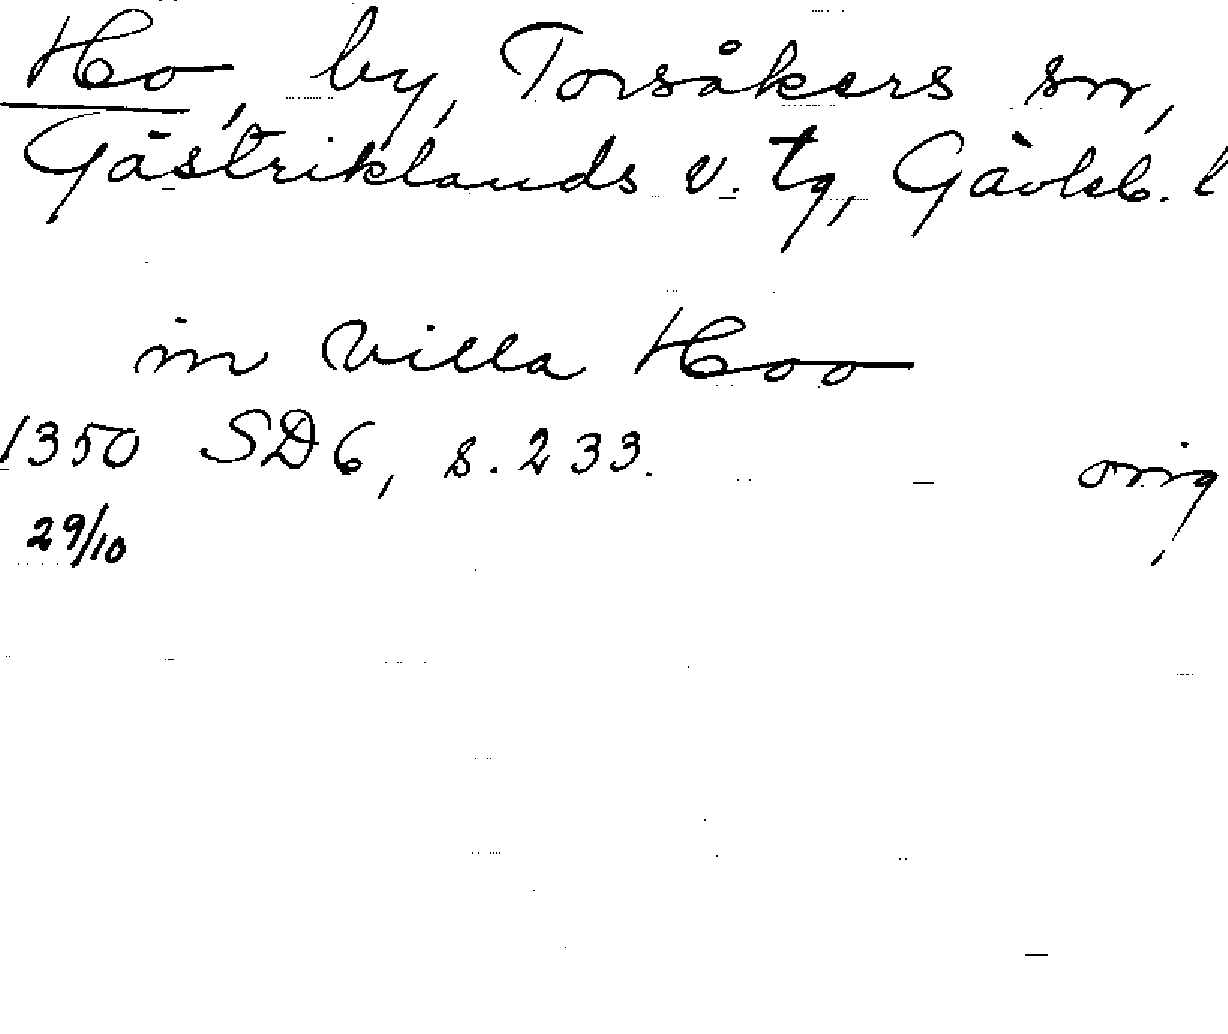 Ho, by, Torsåkers sn,
Gästriklands v. tg, Gävleb. l
in villa Hoo
1350 SD6, s. 233. orig
29/10